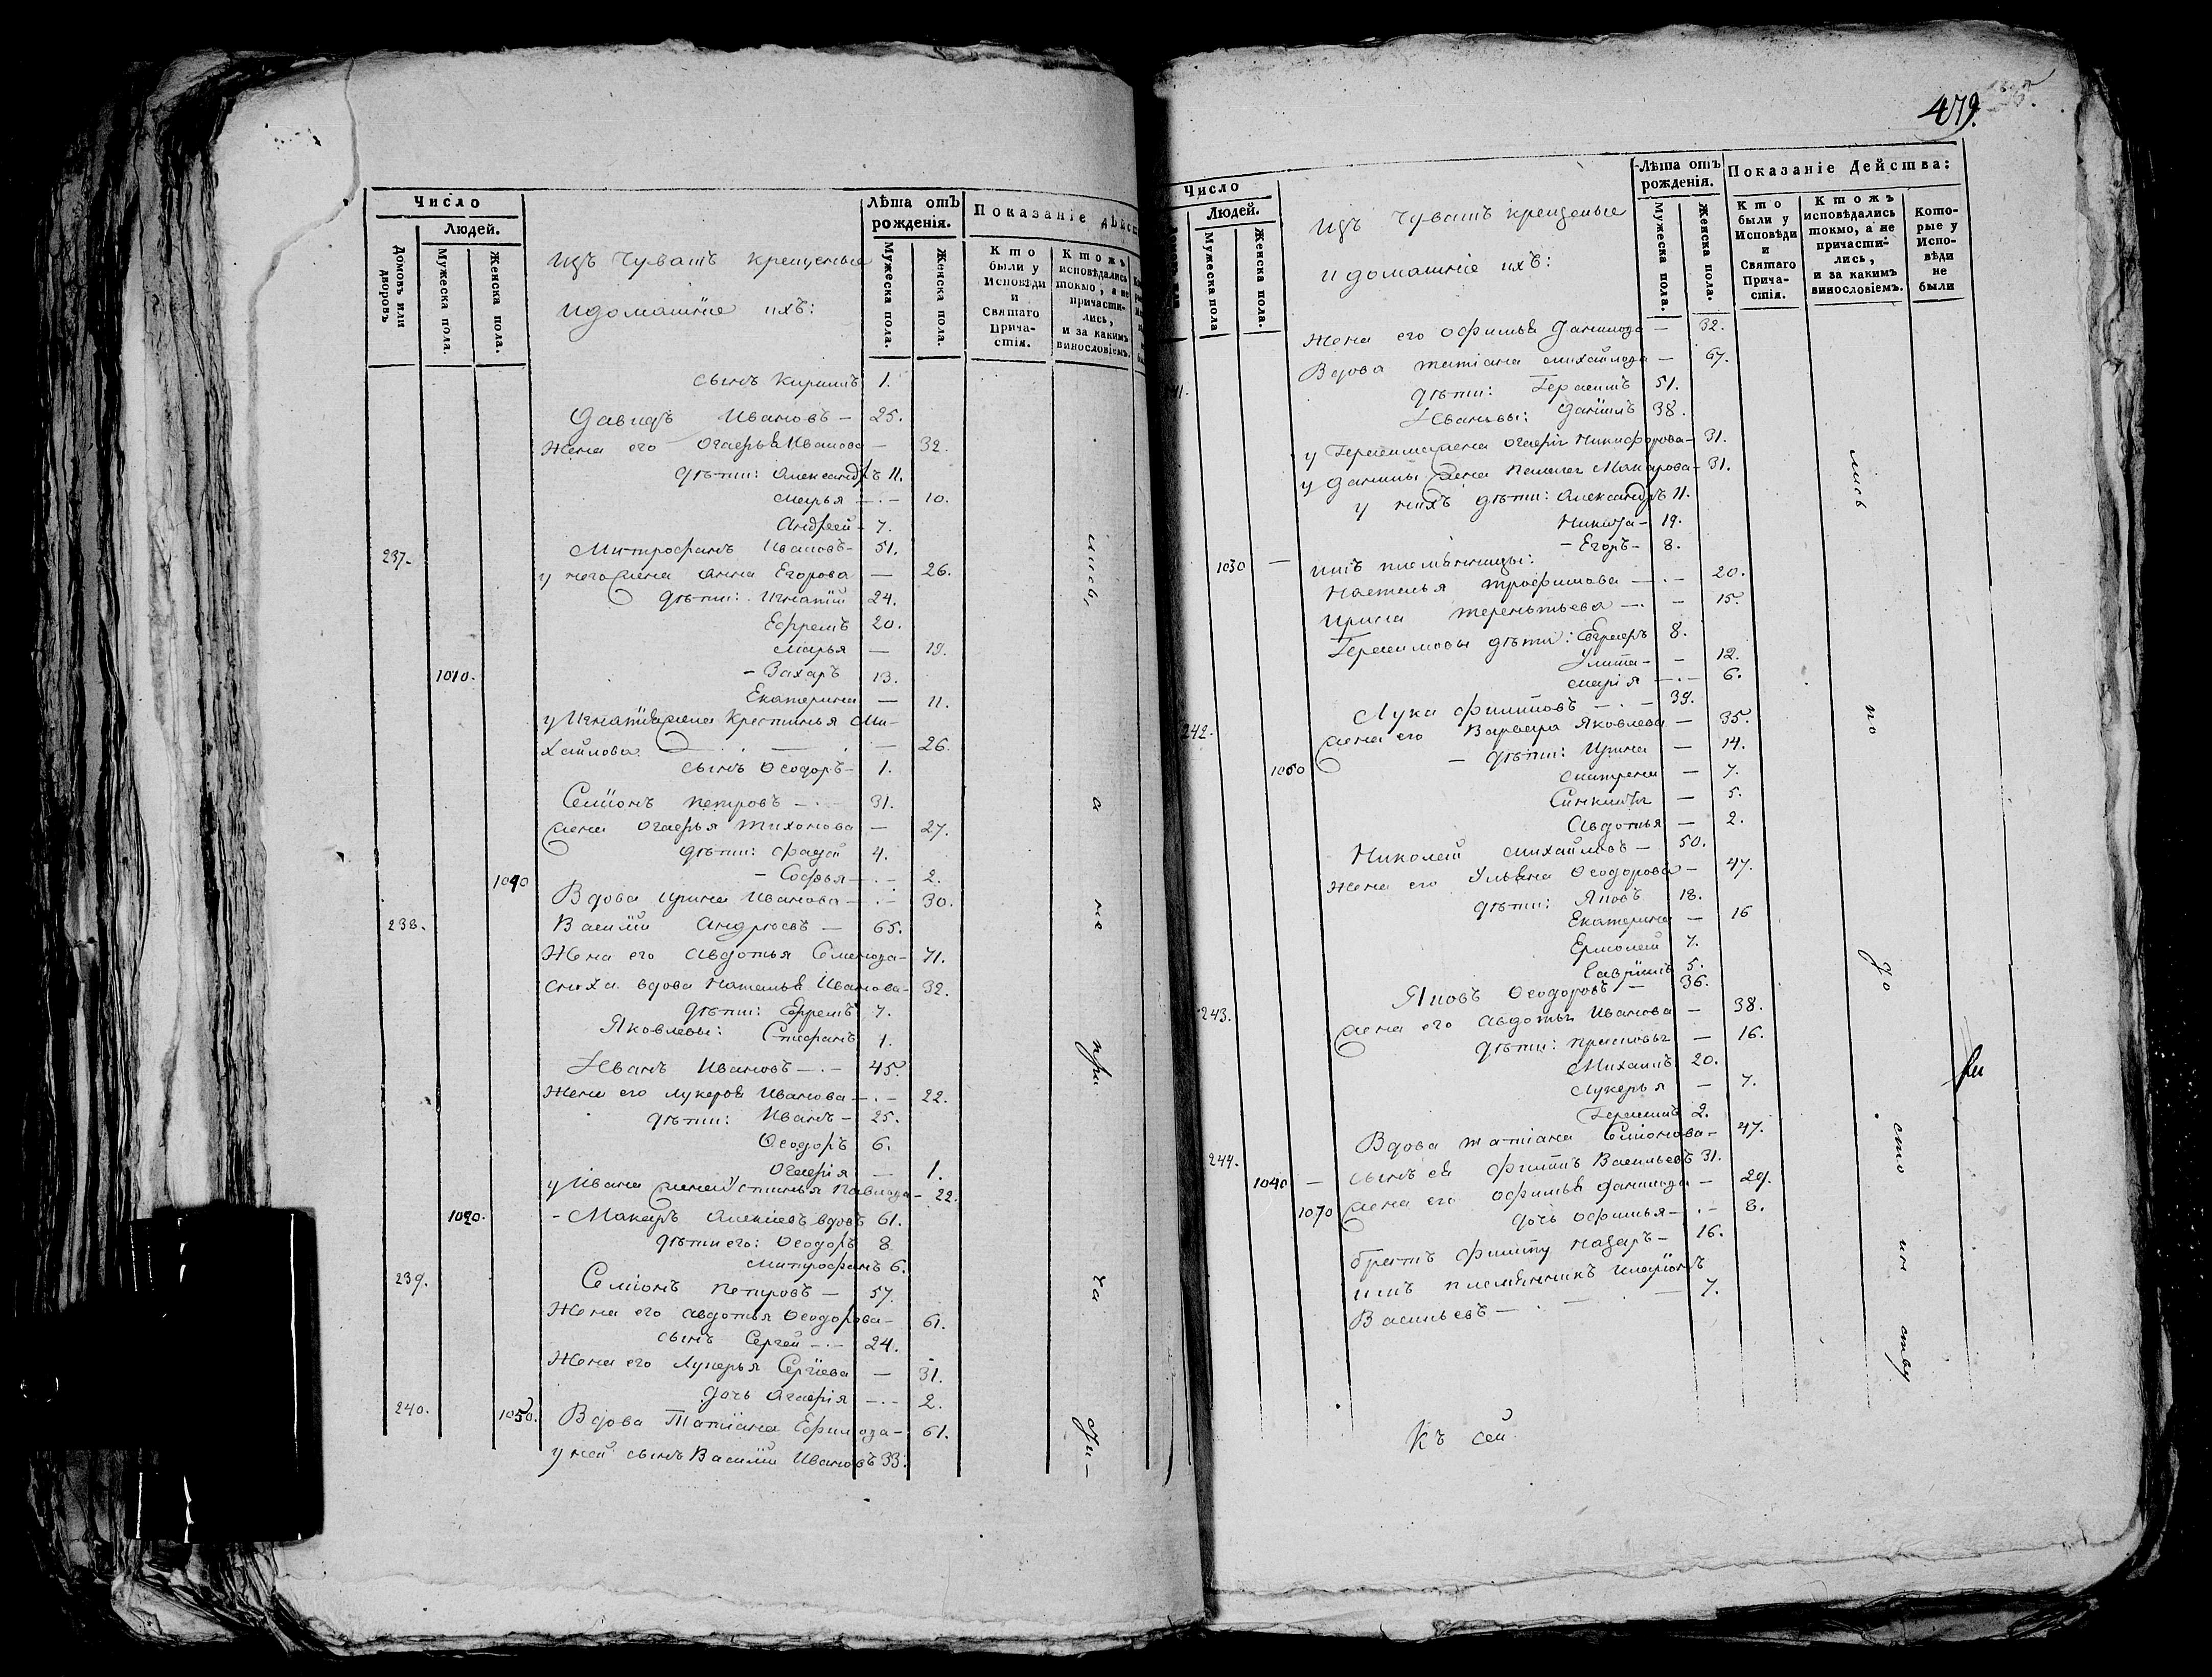 Число
Людей.
Домовъ или дворовъ
Мужеска пола.
Женска пола.
Изъ Чувашъ крещеные
и домашніе ихъ:
Лѣта отъ рожденія.
Мужеска пола.
Женска пола.
Показаніе дѣйс
Кто были у Исповѣди и Святаго Прича- стія.
Ктожъ исповѣдались токмо, а не причасти- лись, и за какимъ винословіемъ.
сынъ Кирилъ 1.
Давидъ Ивановъ — 25.
Жена его Огафья Иванова — 32.
дѣти: Александръ 11.
Марья — 10.
Андрей — 7.
237. Митрофанъ Ивановъ — 51.
у него жена Анна Егорова — 26.
дѣти: Игнатій 24.
Ефремъ 20.
Марья — 19.
1010. - Захаръ 13.
Екатерина — 11.
у Игнатія жена Крестинья Ми-
хайлова — 26.
сынъ Ѳеодоръ — 1.
Семіонъ Петровъ — 31.
жена Огафья Тихонова — 27.
дѣти: Фадей 4.
1040 - Софья — 2.
Вдова Ирина Иванова — 30.
238. Василій Андреевъ — 65.
Жена его Авдотья Семенова — 71.
сноха вдова Наталья Иванова — 32.
дѣти: Ефремъ 7.
Яковлевы: Стефанъ 1.
Иванъ Ивановъ — 45.
Жена его Лукерья Иванова — 22.
дѣти: Иванъ — 25.
Ѳеодоръ 6.
Огафія — 1.
у Ивана жена Устинья Павлова — 22.
1020. - Макаръ Алексіевъ вдовъ 61.
дѣти его: Ѳеодоръ 8
Митрофанъ 6.
239. Семіонъ Петровъ — 57.
Жена его Авдотья Ѳеодорова — 61.
сынъ Сергей — 24.
Жена его Лукерья Сергіева — 31.
дочь Агафія — 2.
240. 1050. Вдова Татіана Ефимова — 61.
у ней сынъ Василій Ивановъ 33.
лись,
а
не
при
ча
сти-
479.
Число
Людей.
Мужеска пола
Женска пола.
Изъ Чувашъ крещеные
и домашніе ихъ:
Лѣта отъ рожденія.
Мужеска пола.
Женска пола.
Показаніе Действа:
Кто были у Исповѣди и Святаго Прича- стія.
Ктожъ исповѣдались токмо, а не причасти- лись, и за какимъ винословіемъ.
Кото- рые у Испо- вѣди не были
Жена его Офимья Данилова — 32.
41. Вдова Татіана Михайлова — 67.
дѣти: Герасимъ 51.
Ивановы: Данилъ 38.
у Герасима жена Огафія Никифорова — 31.
у Данилы жена Пелагея Макарова — 31.
у нихъ дѣти: Александръ 11.
Никита — 19.
1030 — - Егоръ — 8.
ихъ племянницы:
Наталья Трофимова — 20.
Ирина Терентьева — 15.
Герасимовы дѣти: Евграфъ 8.
Улита — 12.
Марія — 6.
242. Лука Филиповъ — 39.
жена его Варвара Яковлева — 35.
1060 - дѣти: Ирина — 14.
Матрена — 7.
Синклитія — 5.
Авдотья — 2.
Николай Михайловъ — 50.
Жена его Ульяна Ѳеодорова — 47.
дѣти: Яковъ 18.
Екатерина — 16
Ермолай 7.
Гаврилъ 5.
243. Яковъ Ѳеодоровъ — 36.
жена его Авдотья Иванова — 38.
дѣти: Прасковья — 16.
Михаилъ 20.
Лукерья — 7.
Герасимъ 2.
244. Вдова Татіана Семіонова — 47.
1040 — сынъ ея Филипъ Васильевъ 31.
1070 жена его Офимья Данилова — 29.
дочь Офимья — 8.
братъ Филипу Назаръ — 16.
ихъ племянникъ Иларіонъ
Васильевъ — 7.
лись
по
до
сто
ин
ству
Къ сей